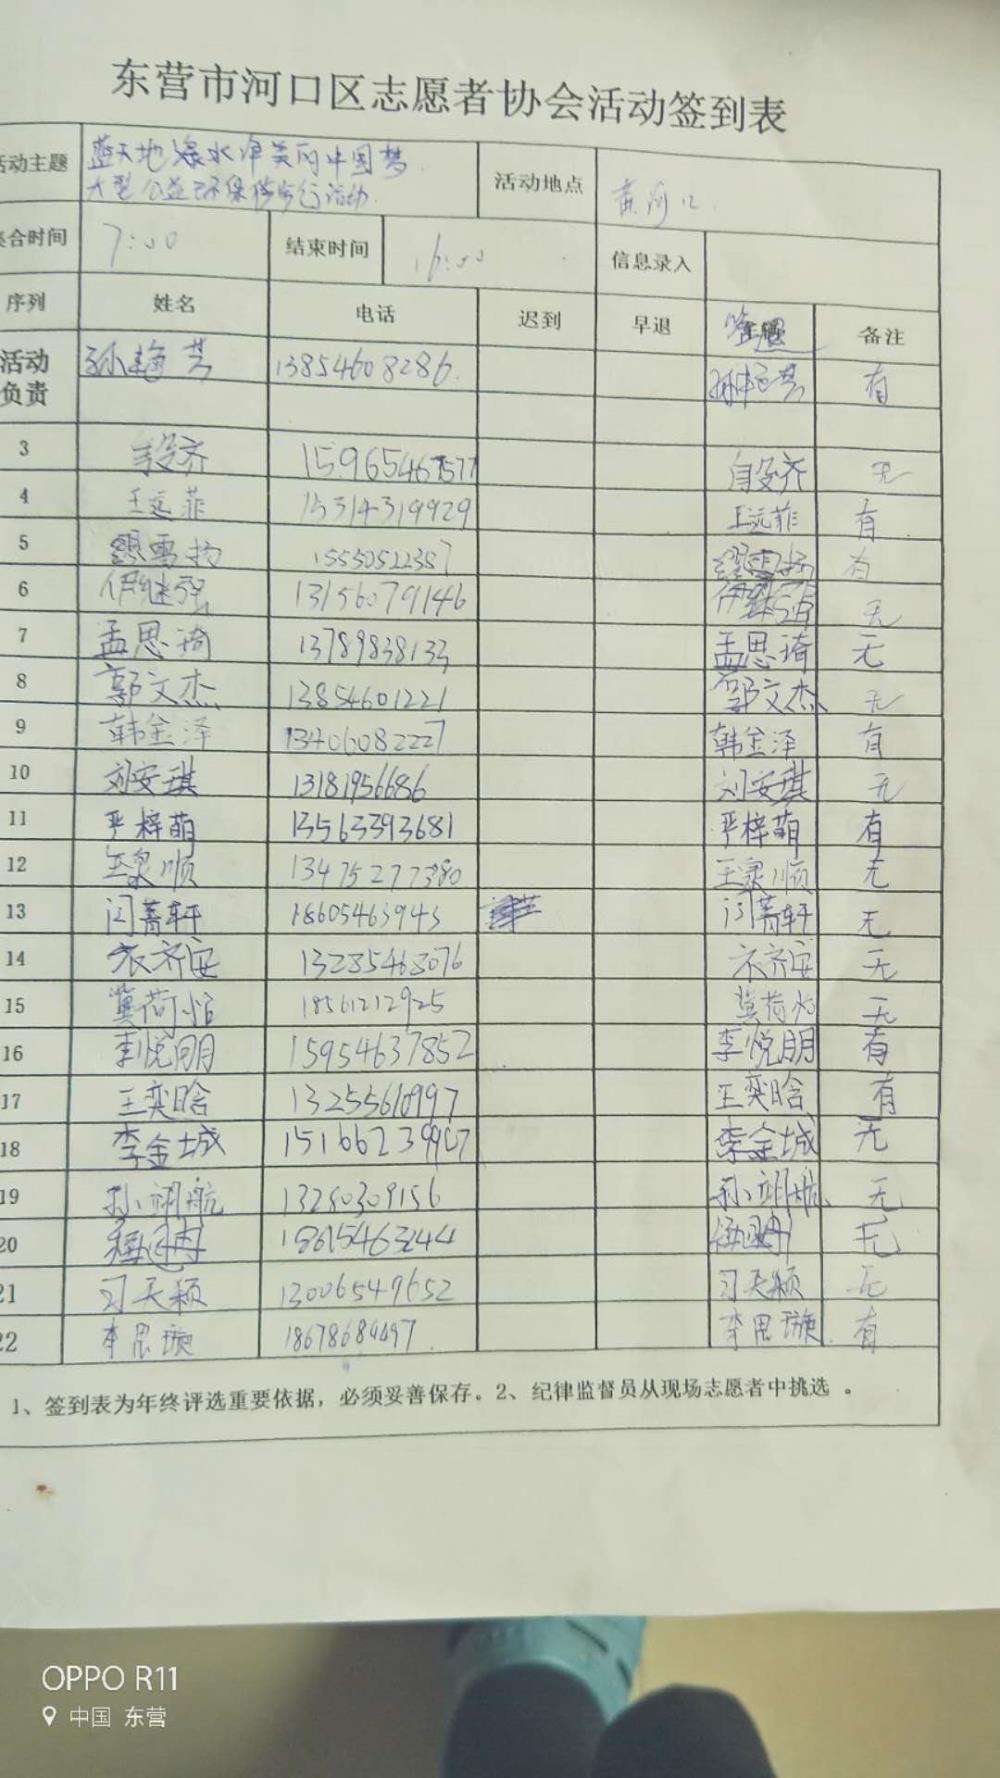 东营市河口区志愿者协会活动签到表
活动主题 蓝天地绿水净美的中国梦 大型公益环保徒步行活动 活动地点 黄河口
集合时间 7:00 结束时间 16:00 信息录入
序列 姓名 电话 迟到 早退 备注
活动负责 孙梅芝 13854608286 有
3 15965467577 无
4 王远菲 15314319929 王远菲 有
5 15550522387 有
6 伊继强 13156079146 无
7 孟思琦 13789838133 孟思琦 无
8 郭文杰 13854601221 郭文杰 无
9 韩金泽 13406082227 韩金泽 有
10 刘安琪 13181956686 刘安琪 无
11 严梓萌 13563393681 严梓萌 有
12 王泉顺 13475277380 王泉顺 无
13 闫菁轩 18605463943 闫菁轩 无
14 衣齐安 13285468076 衣齐安 无
15 冀荷怡 18561212925 冀荷怡 无
16 李悦明 15954637852 李悦朋 有
17 王奕晗 13255610997 王奕晗 有
18 李金城 15166239907 李金城 无
19 孙翊航 13280309156 孙翊航 无
20 18615463244 无
21 习天颖 13006549652 习天颖 无
22 李思璇 18678684497 李思璇 有
1、签到表为年终评选重要依据，必须妥善保存。2、纪律监督员从现场志愿者中挑选 。
OPPO R11
中国 东营